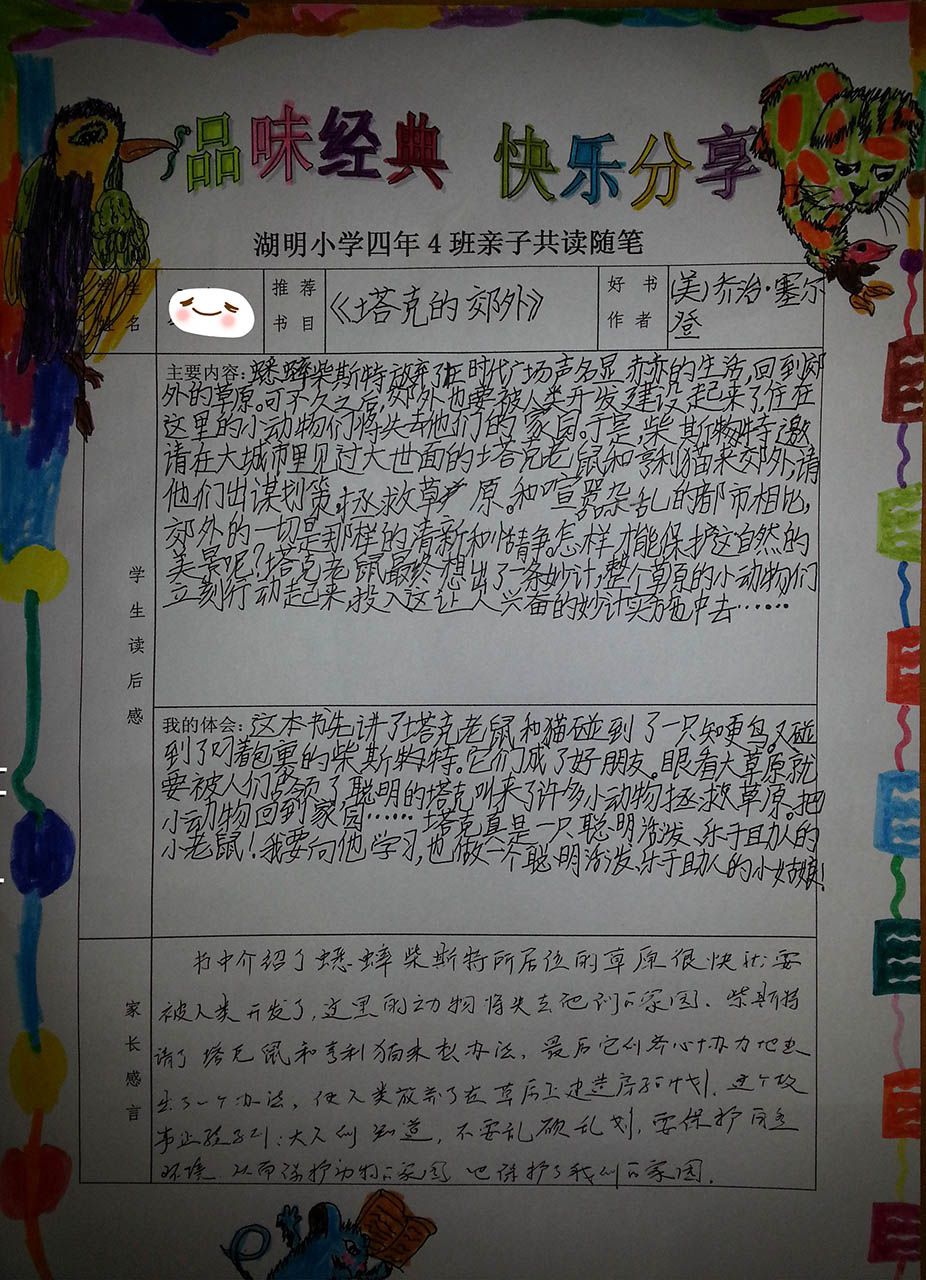 品味经典 快乐分享
湖明小学四年4班亲子共读随笔
学生姓名
推荐书目
《塔克的郊外》
好书作者
(美)乔治·塞尔登
学生读后感
主要内容:蟋蟀柴斯特放弃了在时代广场声名显赫赫的生活,回到郊
外的草原。可不久之后,郊外也要被人类开发建设起来了,住在
这里的小动物们将失去他们的家园。于是,柴斯特邀
请在大城市里见过大世面的塔克老鼠和亨利猫来郊外,请
他们出谋划策,拯救草原。和喧嚣杂乱的都市相比,
郊外的一切是那样的清新和恬静。怎样才能保护这自然的
美景呢?塔克老鼠最终想出了一条妙计,整个草原的小动物们
立刻行动起来,投入这让人兴奋的妙计实施中去……
我的体会:这本书先讲了塔克老鼠和猫碰到了一只知更鸟。又碰
到了的柴斯特。它们成了好朋友。眼看大草原就
要被人们占领了,聪明的塔克叫来了许多小动物拯救草原。把
小动物回到家园……塔克真是一只聪明活泼、乐于助人的
小老鼠!我要向他学习,也做一个聪明活泼、乐于助人的小姑娘!
家长感言
书中介绍了蟋蟀柴斯特所居住的草原很快就要
被人类开发了,这里的动物将失去他们的家园、柴斯特
请了塔克鼠和亨利猫来想办法,最后它们齐心协力地想
出了一个办法,使人类放弃了在草原上建造房子的计划,这个故
事教我们:大人们知道,不要乱砍乱划,要保护自然
环境,从而保护动物的家园,也保护了我们的家园.